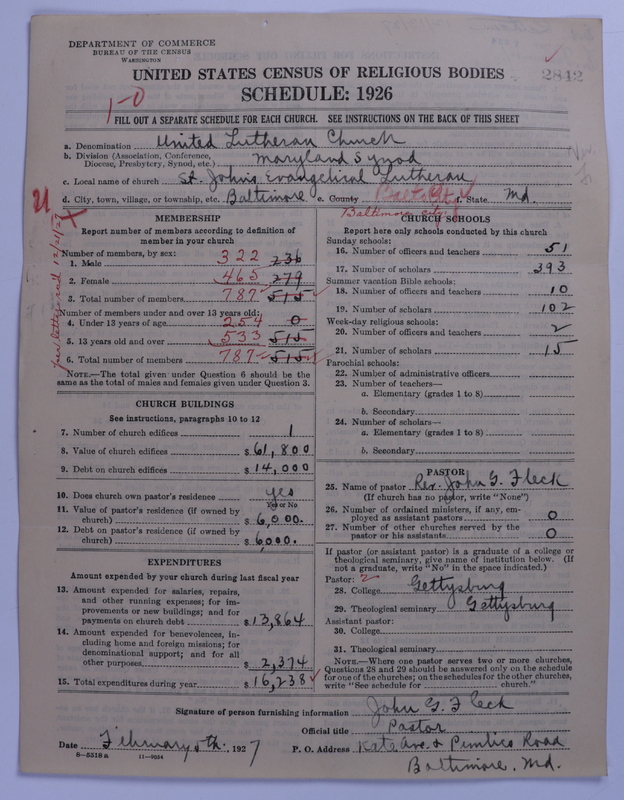 DEPARTMENT OF COMMERCE
BUREAU OF THE CENSUS
WASHINGTON
UNITED STATES CENSUS OF RELIGIOUS BODIES
2842
SCHEDULE: 1926
1-0
FILL OUT A SEPARATE SCHEDULE FOR EACH CHURCH. SEE INSTRUCTIONS ON THE BACK OF THIS SHEET
a. Denomination United Lutheran Church
b. Division (Association, Conference, Diocese, Presbytery, Synod, etc.) Maryland Synod
c. Local name of church St. Johns Evangelical Lutheran
d. City, town, village, or township, etc. Baltimore e. County Balto City f. State Md.
Baltimore city
U
X
MEMBERSHIP
Report number of members according to definition of
member in your church
Number of members, by sex:
1. Male 322 236
2. Female 465 279
3. Total number of members 787 515
Number of members under and over 13 years old:
4. Under 13 years of age 254 0
5. 13 years old and over 533 515
6. Total number of members 787 515
NOTE.—The total given under Question 6 should be the
same as the total of males and females given under Question 3.
CHURCH BUILDINGS
See instructions, paragraphs 10 to 12
7. Number of church edifices 1
8. Value of church edifices $ 61,800
9. Debt on church edifices $ 14,000
10. Does church own pastor's residence yes
Yes or No
11. Value of pastor's residence (if owned by
church) $ 6,000.
12. Debt on pastor's residence (if owned by
church) $ 6000.
EXPENDITURES
Amount expended by your church during last fiscal year
13. Amount expended for salaries, repairs,
and other running expenses; for im-
provements or new buildings; and for
payments on church debt $ 13,864
14. Amount expended for benevolences, in-
cluding home and foreign missions; for
denominational support; and for all
other purposes $ 2,374
15. Total expenditures during year $ 16,238
CHURCH SCHOOLS
Report here only schools conducted by this church
Sunday schools:
16. Number of officers and teachers 51
17. Number of scholars 393
Summer vacation Bible schools:
18. Number of officers and teachers 10
19. Number of scholars 102
Week-day religious schools:
20. Number of officers and teachers 2
21. Number of scholars 15
Parochial schools:
22. Number of administrative officers
23. Number of teachers—
a. Elementary (grades 1 to 8)
b. Secondary
24. Number of scholars—
a. Elementary (grades 1 to 8)
b. Secondary
PASTOR
25. Name of pastor Rev. John G. Fleck
(If church has no pastor, write "None")
26. Number of ordained ministers, if any, em-
ployed as assistant pastors 0
27. Number of other churches served by the
pastor or his assistants 0
If pastor (or assistant pastor) is a graduate of a college or
theological seminary, give name of institution below. (If
not a graduate, write "No" in the space indicated.)
Pastor: 2
28. College Gettysburg
29. Theological seminary Gettysburg
Assistant pastor:
30. College
31. Theological seminary
NOTE.—Where one pastor serves two or more churches,
Questions 28 and 29 should be answered only on the schedule
for one of the churches; on the schedules for the other churches,
write "See schedule for church."
Signature of person furnishing information John G. Fleck
Official title Pastor
Date February 1927
P. O. Address Kate Ave. & Pimlico Road
Baltimore, Md.
6—5518 a 11—9054